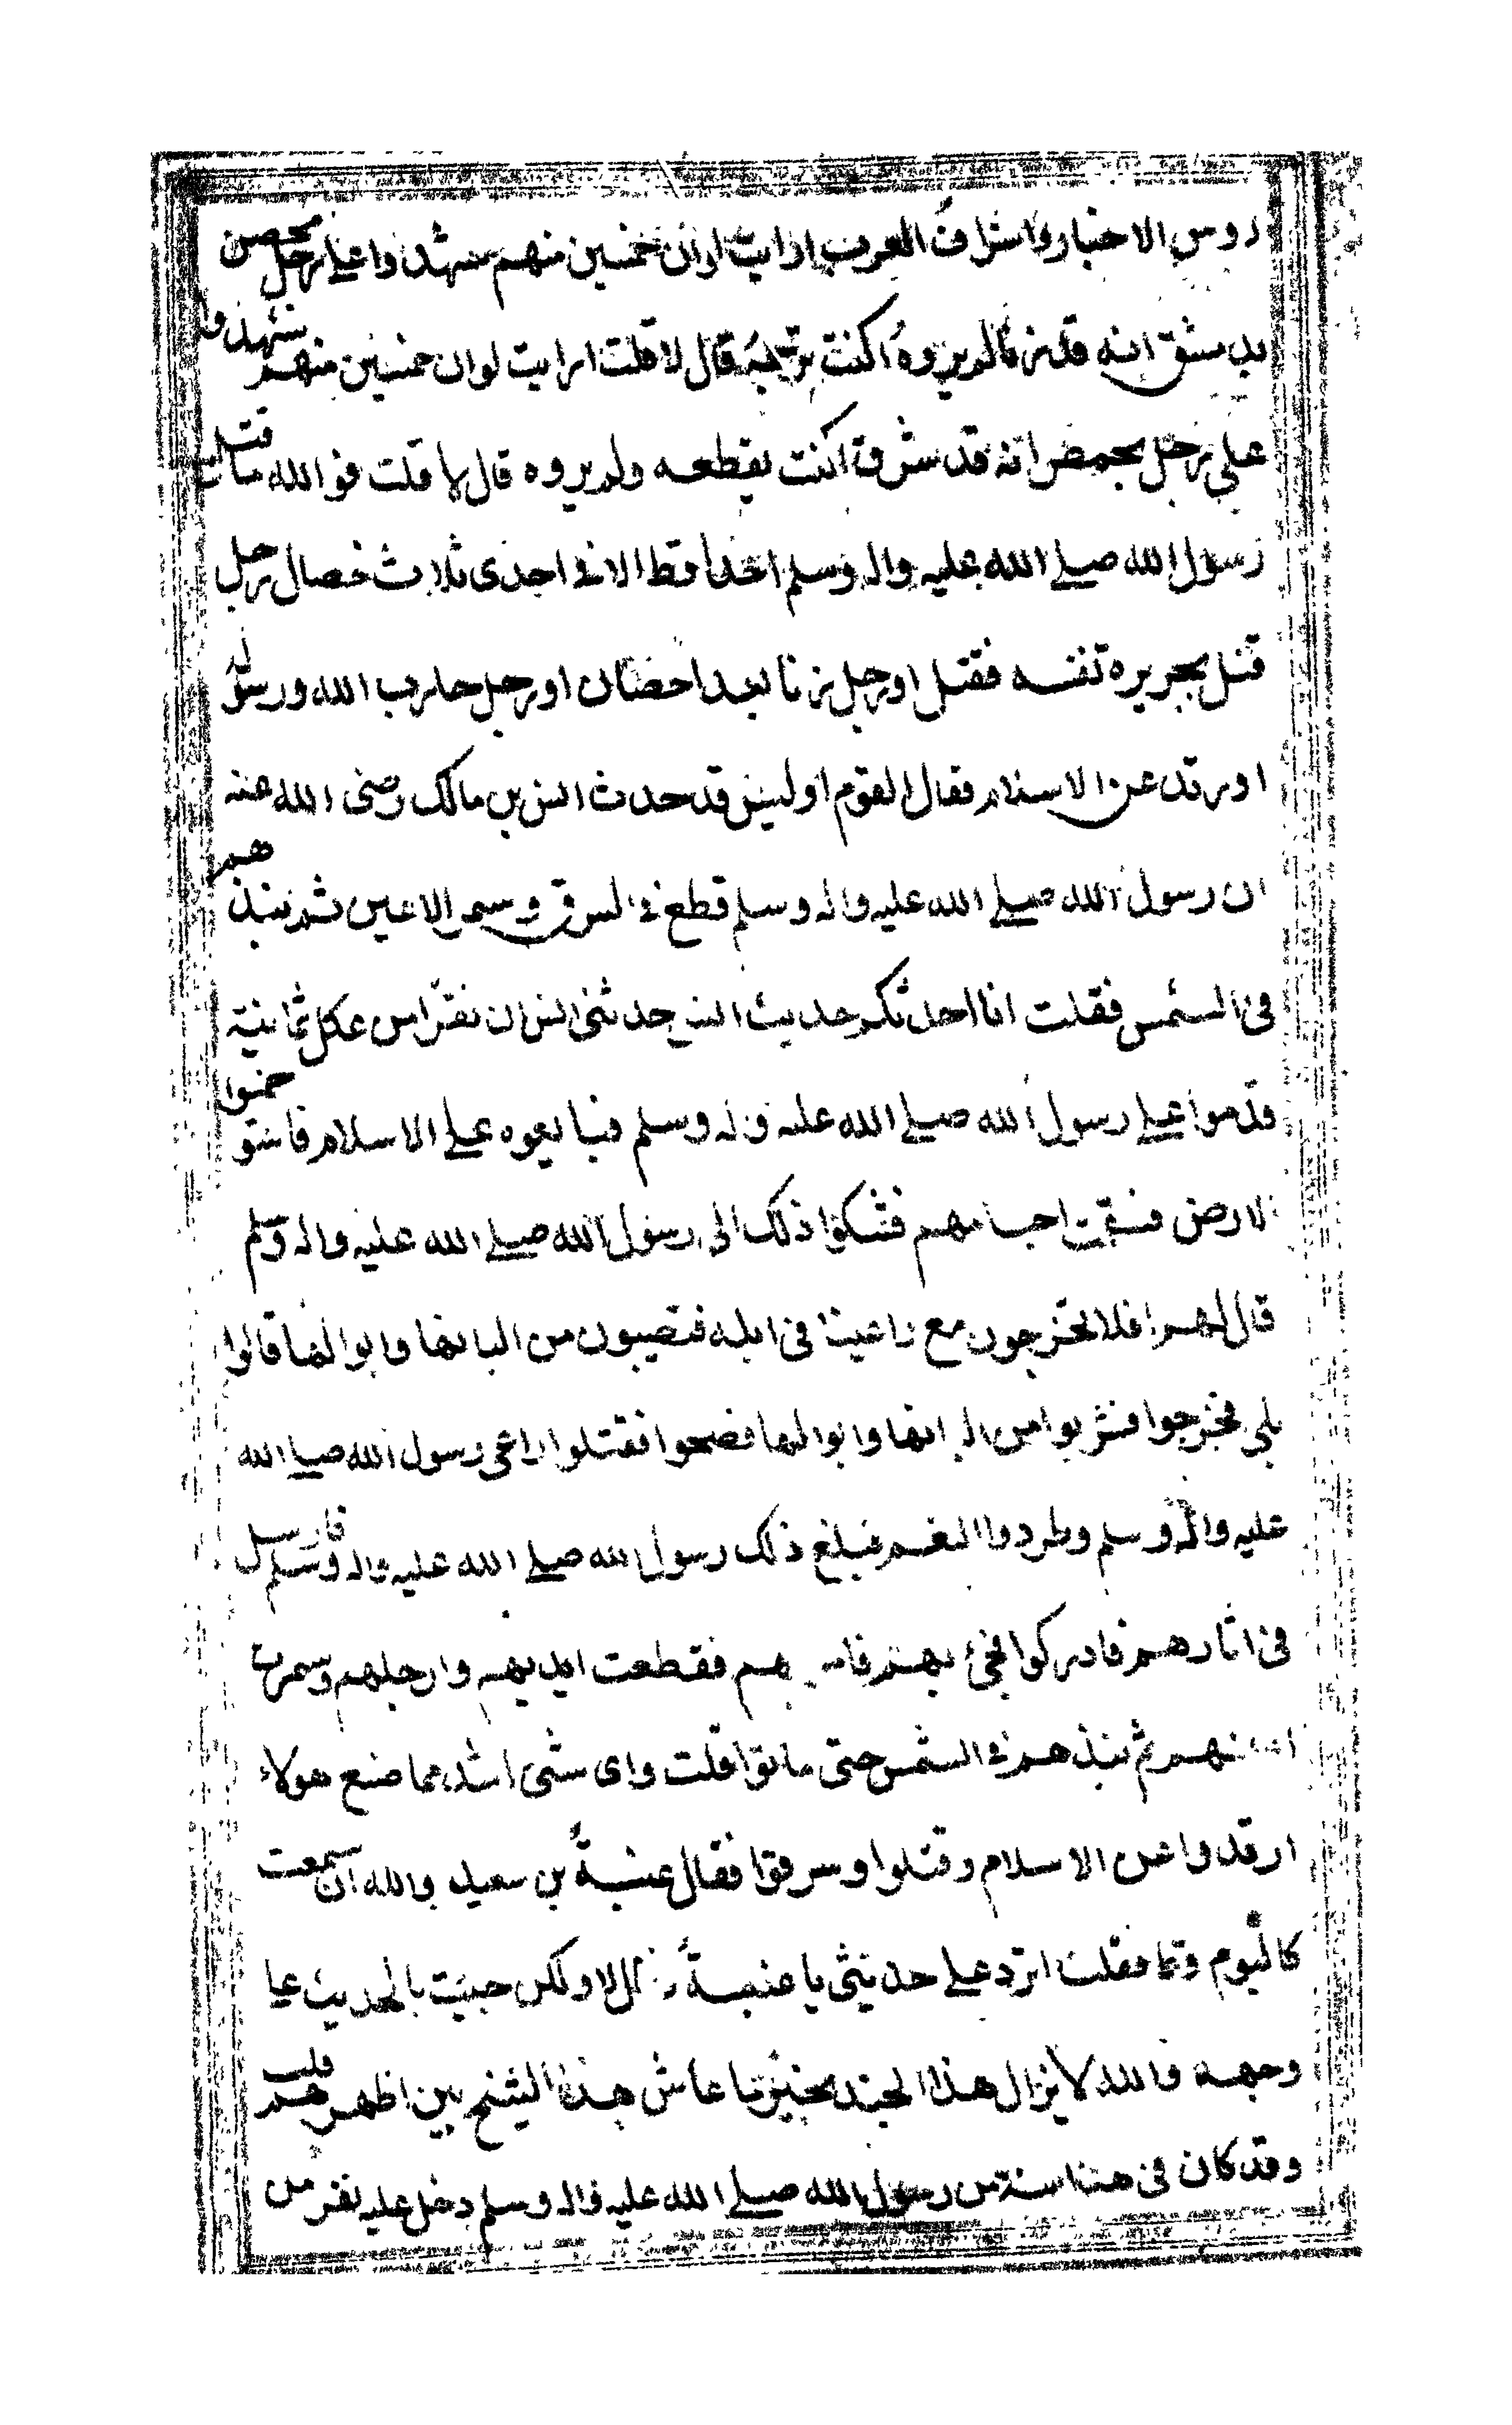 روس الاخبار واشراف العرب ارايت لو ان خمسين منهم شهدوا على رجل محصن
بدمشق انه قد زنا لم يروه اكنت ترجمه قال لا قلت ارايت لو ان خمسين منهم شهدوا
على رجل بحمص انه قد سرق اكنت تقطعه ولم يروه قال لا قلت فوالله ما قتل
رسول الله صلى الله عليه واله وسلم احدا قط الا في احدى ثلاث خصال رجل
قتل بجريره نفسه فقتل او رجل زنا بعد احصان او رجل حارب الله ورسوله
او ارتد عن الاسلام فقال القوم او ليس قد حدث انس بن مالك رضى الله عنه
ان رسول الله صلى الله عليه واله وسلم قطع في السرق وسمر الاعين ثم نبذهم
في الشمس فقلت انا احدثكم حديث انس حدثنى انس ان نفرا من عكل ثمانية
قدموا على رسول الله صلى الله عليه واله وسلم فبايعوه على الاسلام فاستوخموا
الارض فسقمت اجسامهم فشكوا ذلك الى رسول الله صلى الله عليه واله وسلم
قال لهم افلا تخرجون مع راعينا في ابله فتصيبون من البانها وابوالها قالوا
بلى فخرجوا فشربوا من البانها وابوالها فصحوا فقتلوا راعى رسول الله صلى الله
عليه واله وسلم وطردوا النعم فبلغ ذلك رسول الله صلى الله عليه واله وسلم فارسل
في اثارهم فادركوا فجئ بهم فامر بهم فقطعت ايديهم وارجلهم وسمرت
اعينهم ثم نبذهم في الشمس حتى ماتوا قلت واى شئ اشد مما صنع هولاء
ارتدوا عن الاسلام وقتلوا وسرقوا فقال عنبسة بن سعيد والله ان سمعت
كاليوم قط فقلت اترد على حديثى يا عنبسة قال لا ولكن جئت بالحديث على
وجهه والله لا يزال هذا الجند بخير ما عاش هذا الشيخ بين اظهرهم قلت
وقد كان في هذا سنة من رسول الله صلى الله عليه واله وسلم دخل عليه نفر من